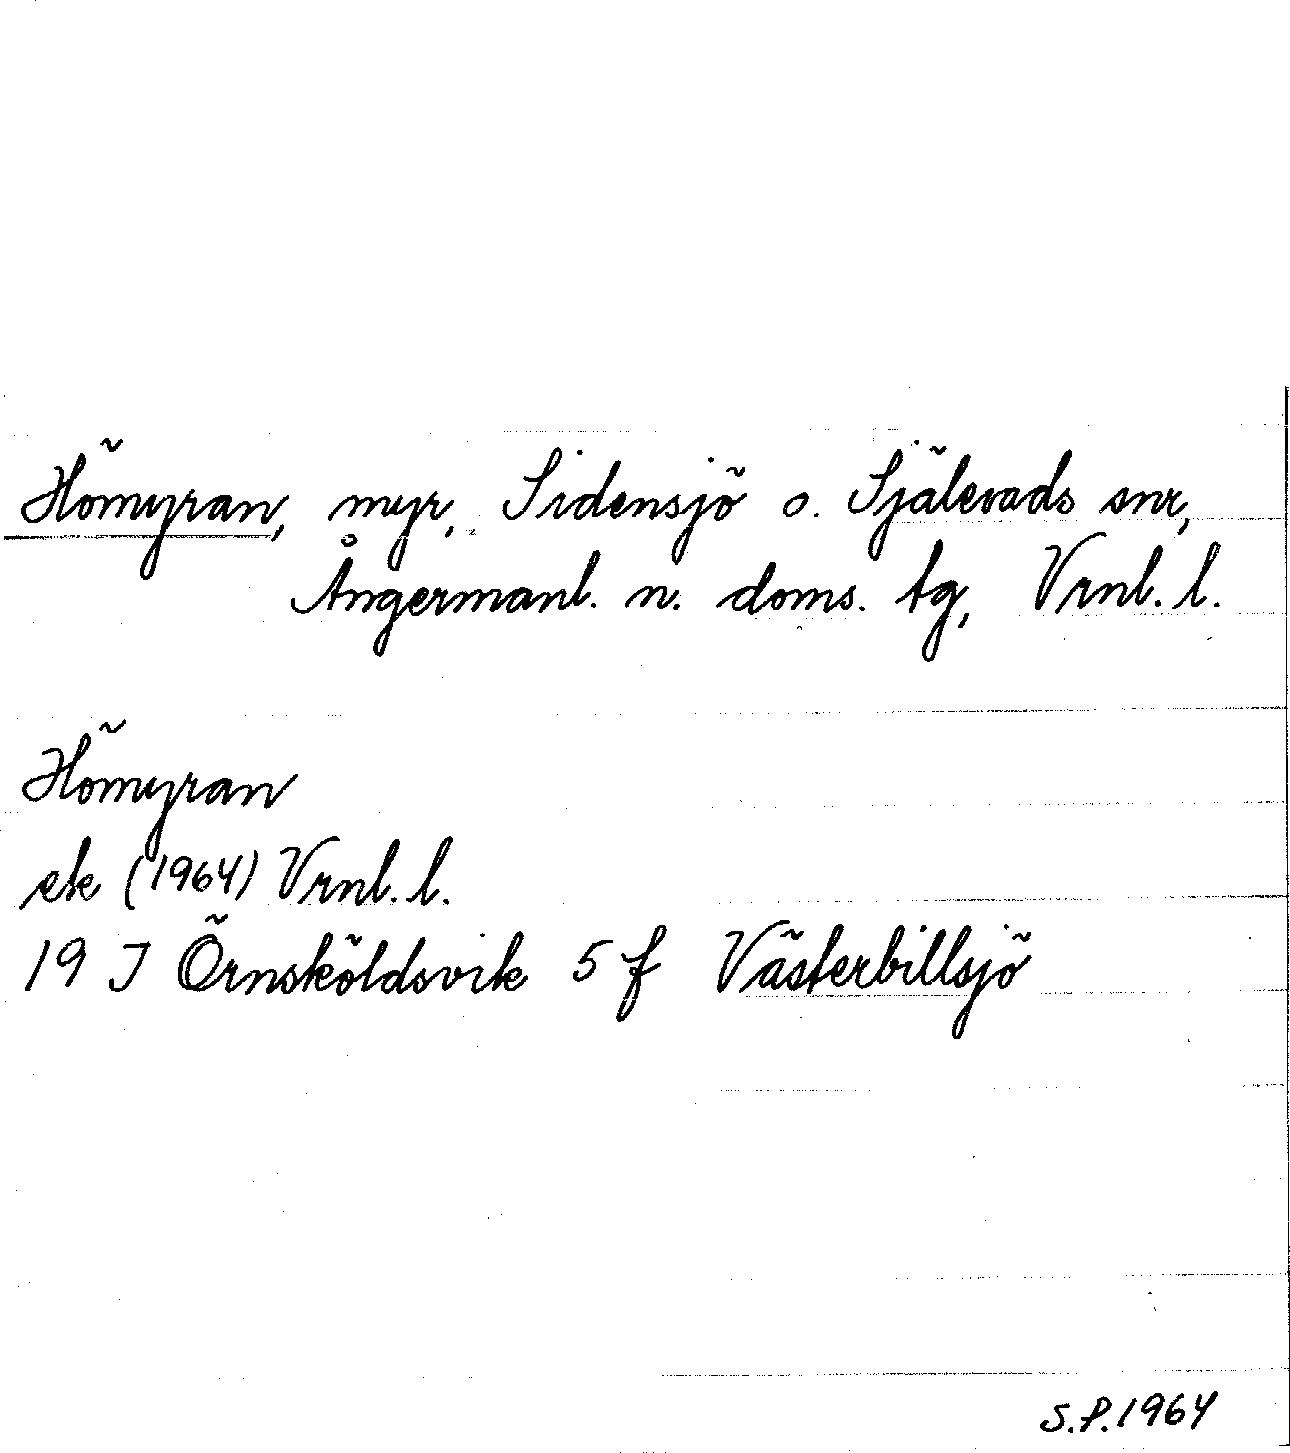 Hömyran, myr, Sidensjö o. Själevads snr,
Ångermanl. n. doms. tg, Vrnl. l.
Hömyran
ek (1964) Vrnl. l.
19 J Örnsköldsvik 5 f Västerbillsjö
S.P. 1964